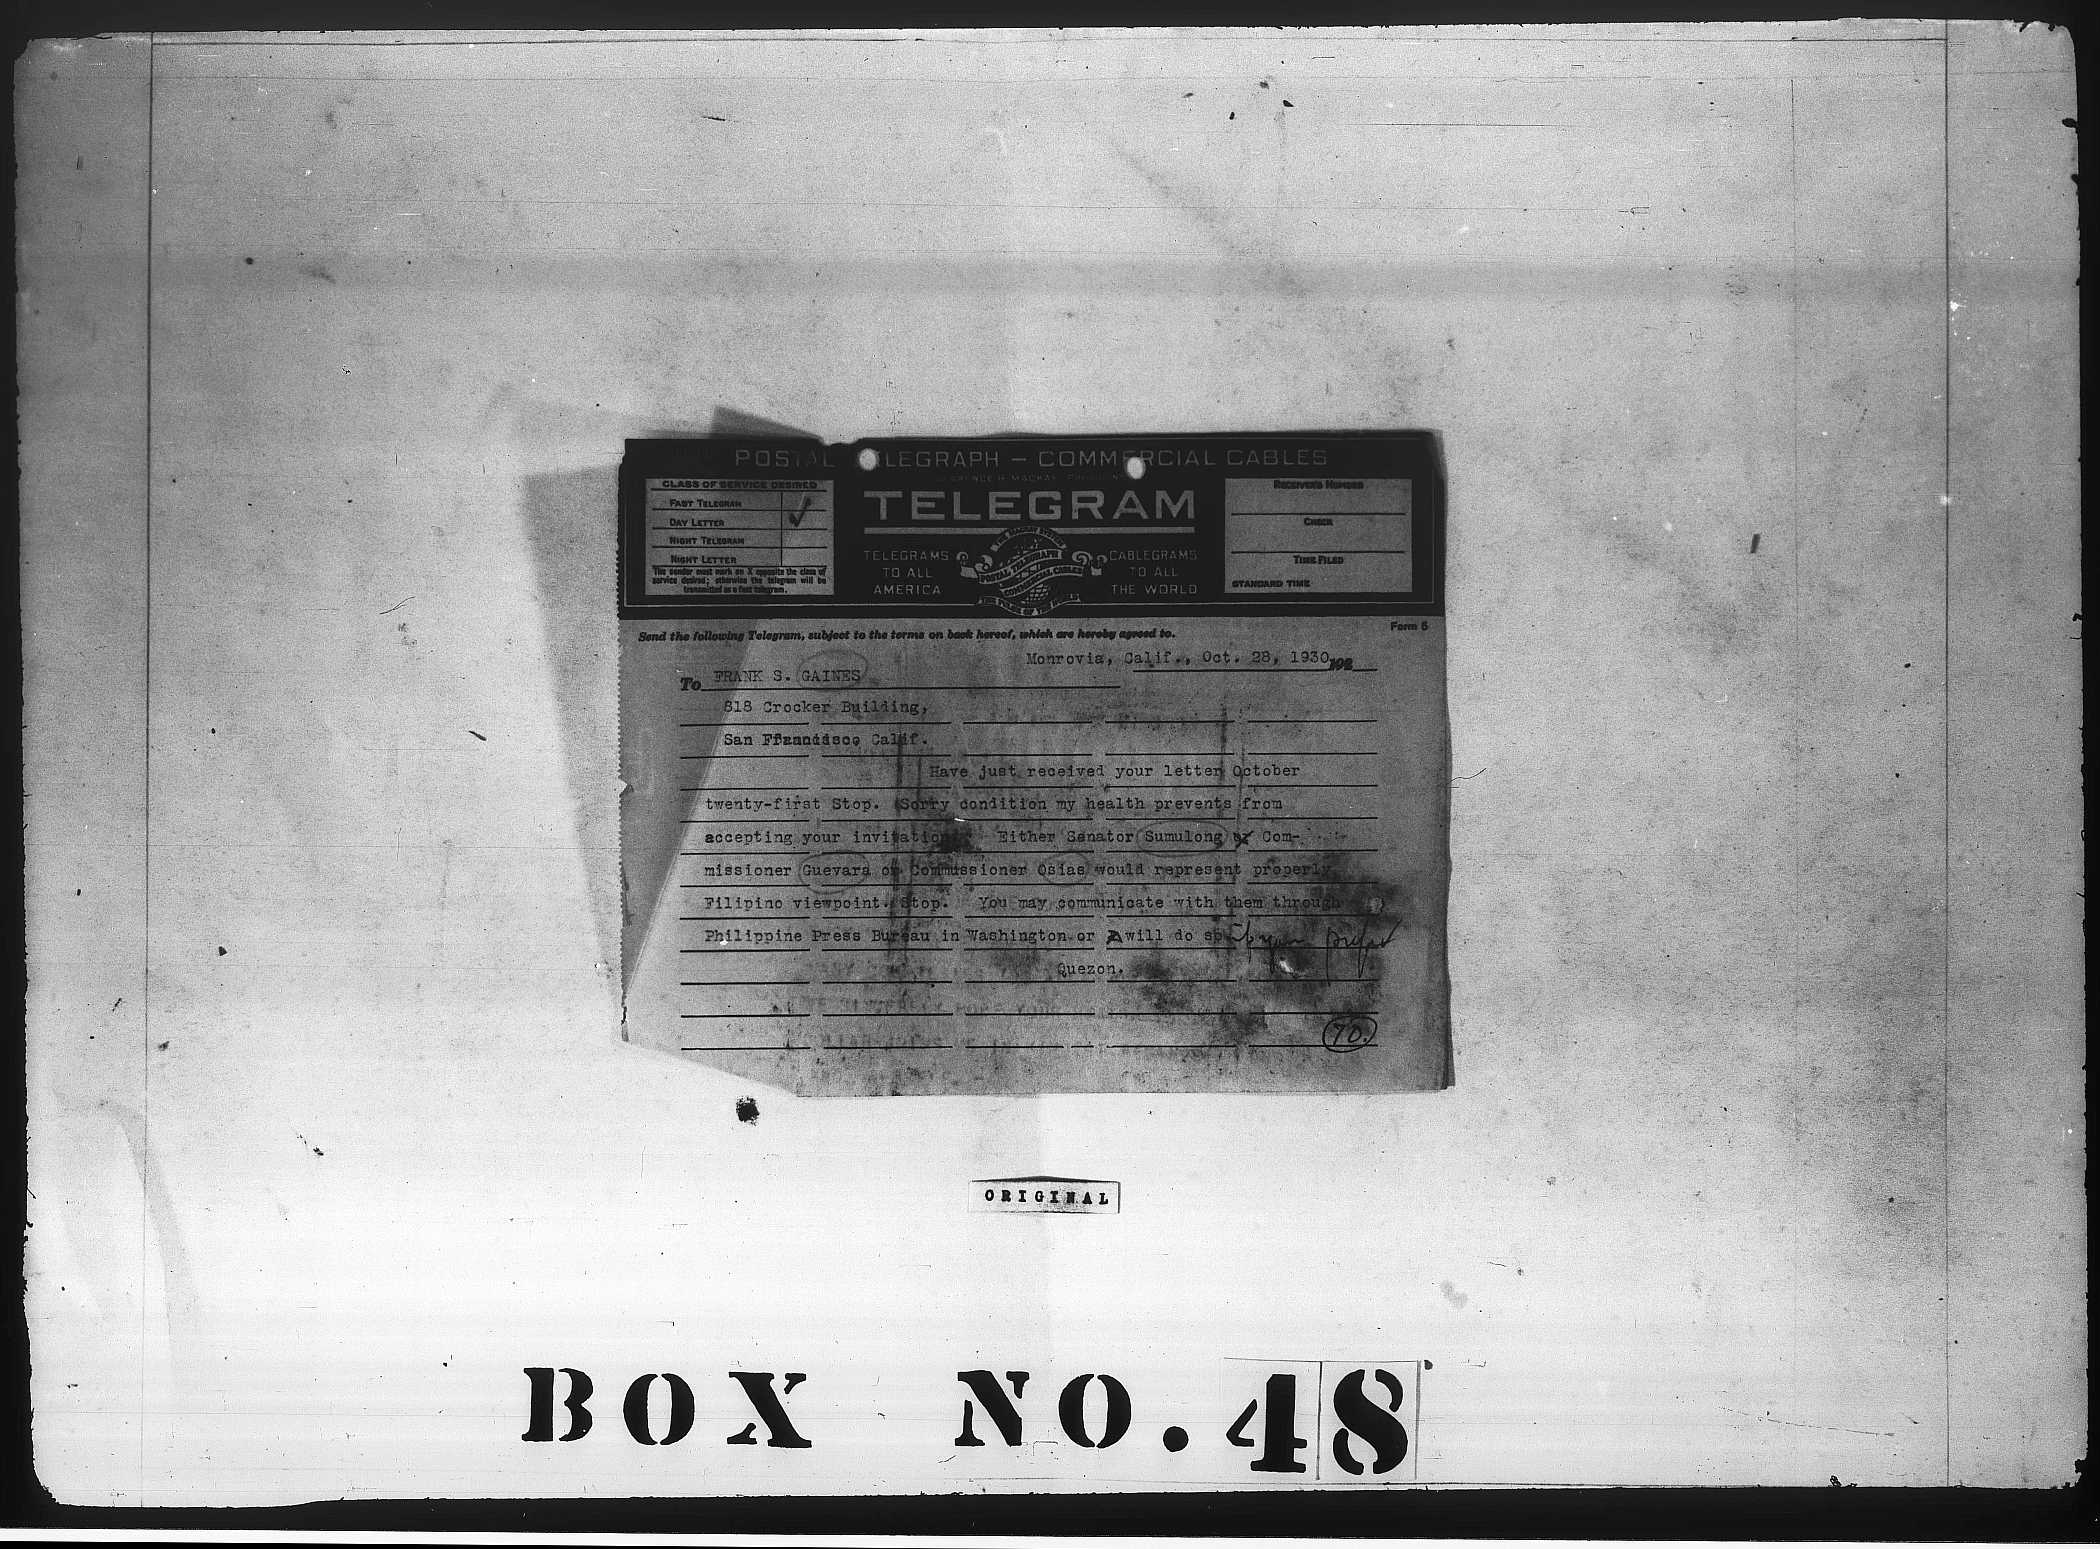 POSTAL TELEGRAPH - COMMERCIAL CABLES
CLARENCE H. MACKAY, PRESIDENT
TELEGRAM
CLASS OF SERVICE DESIRED
FAST TELEGRAM
DAY LETTER ✓
NIGHT TELEGRAM
NIGHT LETTER
The sender must mark an X opposite the class of
service desired; otherwise the telegram will be
transmitted as a fast telegram.
TELEGRAMS
TO ALL
AMERICA
THE MACKAY SYSTEM
POSTAL TELEGRAPH
COMMERCIAL CABLES
CABLEGRAMS
TO ALL
THE WORLD
RECEIVER'S NUMBER
CHECK
TIME FILED
STANDARD TIME
Send the following Telegram, subject to the terms on back hereof, which are hereby agreed to.
Form 5
Monrovia, Calif., Oct. 28, 1930 192
To FRANK S. GAINES
818 Crocker Building,
San Francisco Calif.
Have just received your letter October
twenty-first Stop. Sorry condition my health prevents from
accepting your invitation. Either Senator Sumulong or Com-
missioner Guevara or Commissioner Osias would represent properly
Filipino viewpoint. Stop. You may communicate with them through
Philippine Press Bureau in Washington or I will do so if you prefer
Quezon.
70.
ORIGINAL
BOX NO. 48